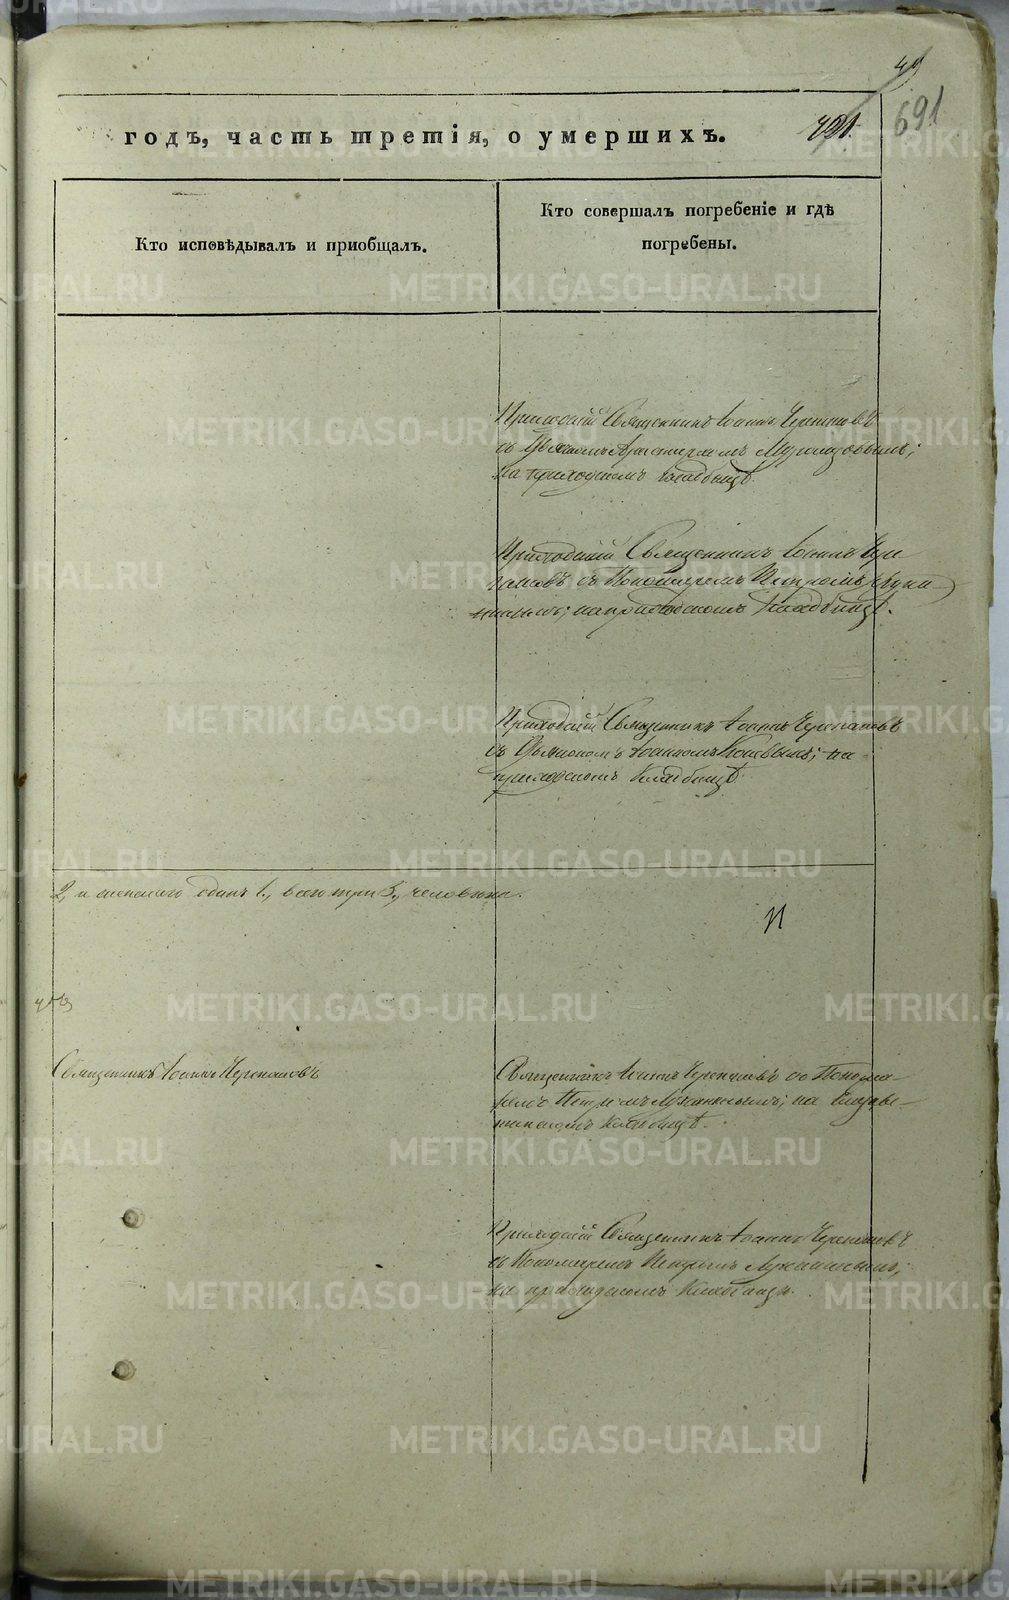 49
691
годъ, часть третія, о умершихъ.
Кто исповѣдывалъ и приобщалъ.
Кто совершалъ погребеніе и гдѣ
погребены.
Приходскій Священникъ Іоаннъ Черепановъ
съ
на приходскомъ кладбищѣ.
Приходскій Священникъ Іоаннъ Чере
пановъ съ Пономаремъ Петромъ Лукани
нымъ; на приходскомъ кладбищѣ.
Приходскій Священникъ Іоаннъ Черепановъ
съ Дьякономъ Іоанномъ; на
приходскомъ кладбищѣ.
2, и женскаго одинъ 1., всего три 3., человѣка.
Священникъ Іоаннъ Черепановъ
Священникъ Іоаннъ Черепановъ со Понома-
ремъ Петромъ Луканинымъ; на
кладбищѣ.
Приходскій Священникъ Іоаннъ Черепановъ
съ Пономаремъ Петромъ Луканинымъ;
на приходскомъ кладбищѣ.
METRIKI.GASO-URAL.RU